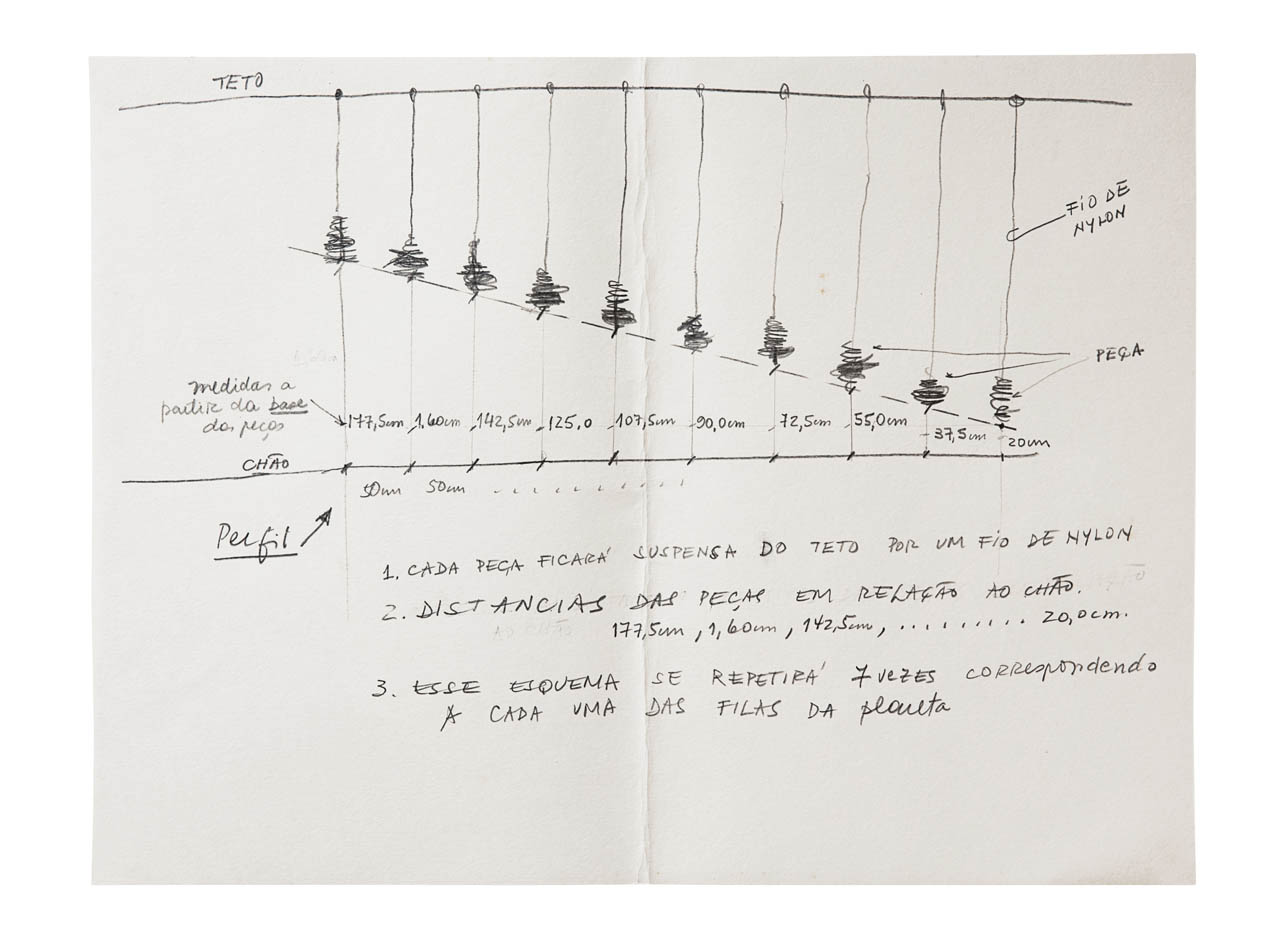 TETO
FIO DE
NYLON
PEÇA
medidas a
partir da base
das peças
177,5cm 1,60cm 142,5cm 125,0 107,5cm 90,0cm 72,5cm 55,0cm 37,5cm 20cm
CHÃO
50cm 50cm . . . . . . . . . .
Perfil
1. CADA PEÇA FICARÁ SUSPENSA DO TETO POR UM FIO DE NYLON
2. DISTANCIAS DAS PEÇAS EM RELAÇÃO AO CHÃO.
177,5cm, 1,60cm, 142,5cm, ......... 20,0cm.
3. ESSE ESQUEMA SE REPETIRÁ 7 VEZES correspondendo
A CADA UMA DAS FILAS DA planta